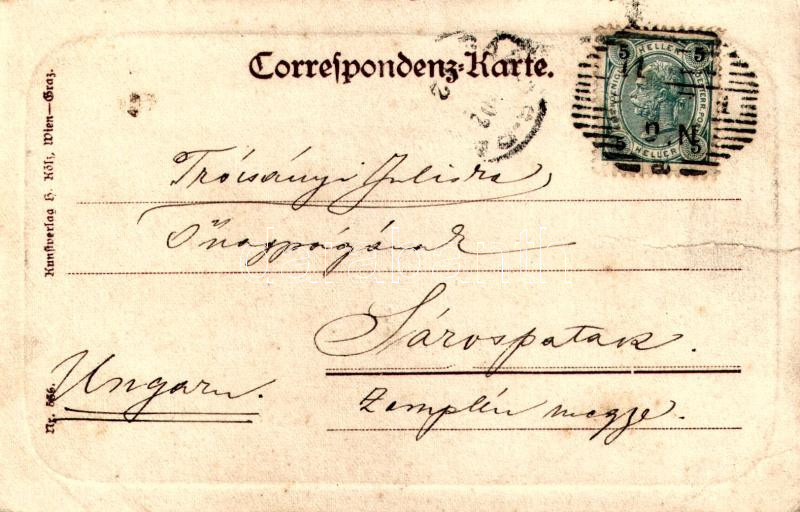 Correspondenz-Karte.
5 HELLER 5
5 HELLER 5
Trócsányi Juliska
Őnagyságának
Sárospatak.
Ungarn.
Zemplén megye.
Kunstverlag H. Kölz, Wien—Graz.
Nr. 566.